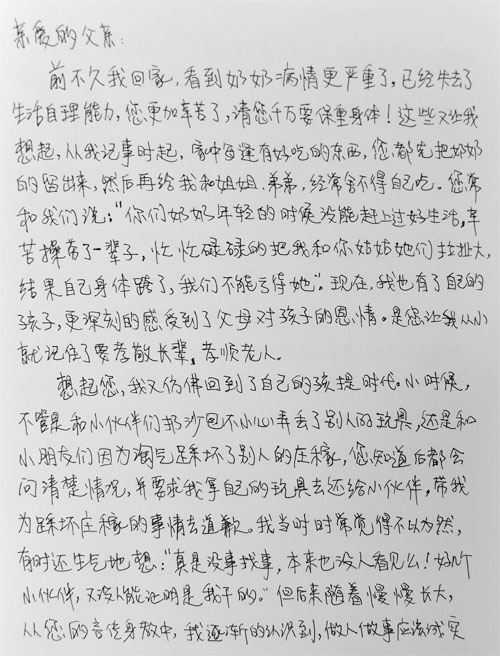 亲爱的父亲：
前不久我回家，看到奶奶病情更严重了，已经失去了
生活自理能力，您更加辛苦了，请您千万要保重身体！这些又让我
想起，从我记事时起，家中每逢有好吃的东西，您都先把奶奶
的留出来，然后再给我和姐姐、弟弟，经常舍不得自己吃。您常
和我们说：“你们奶奶年轻的时候没能赶上过好生活，辛
苦操劳了一辈子，忙忙碌碌的把我和你姑姑她们拉扯大，
结果自己身体跨了，我们不能亏待她”。现在，我也有了自己的
孩子，更深刻的感受到了父母对孩子的恩情。是您让我从小
就记住了要孝敬长辈，孝顺老人。
想起您，我又仿佛回到了自己的孩提时代。小时候，
不管是和小伙伴们扔沙包不小心弄丢了别人的玩具，还是和
小朋友们因为淘气踩坏了别人的庄稼，您知道后都会
问清楚情况，并要求我拿自己的玩具去还给小伙伴，带我
为踩坏庄稼的事情去道歉。我当时时常觉得不以为然，
有时还生气地想：“真是没事找事，本来也没人看见么！好几个
小伙伴，又没人能证明是我干的。”但后来随着慢慢长大，
从您的言传身教中，我逐渐的认识到，做人做事应该诚实